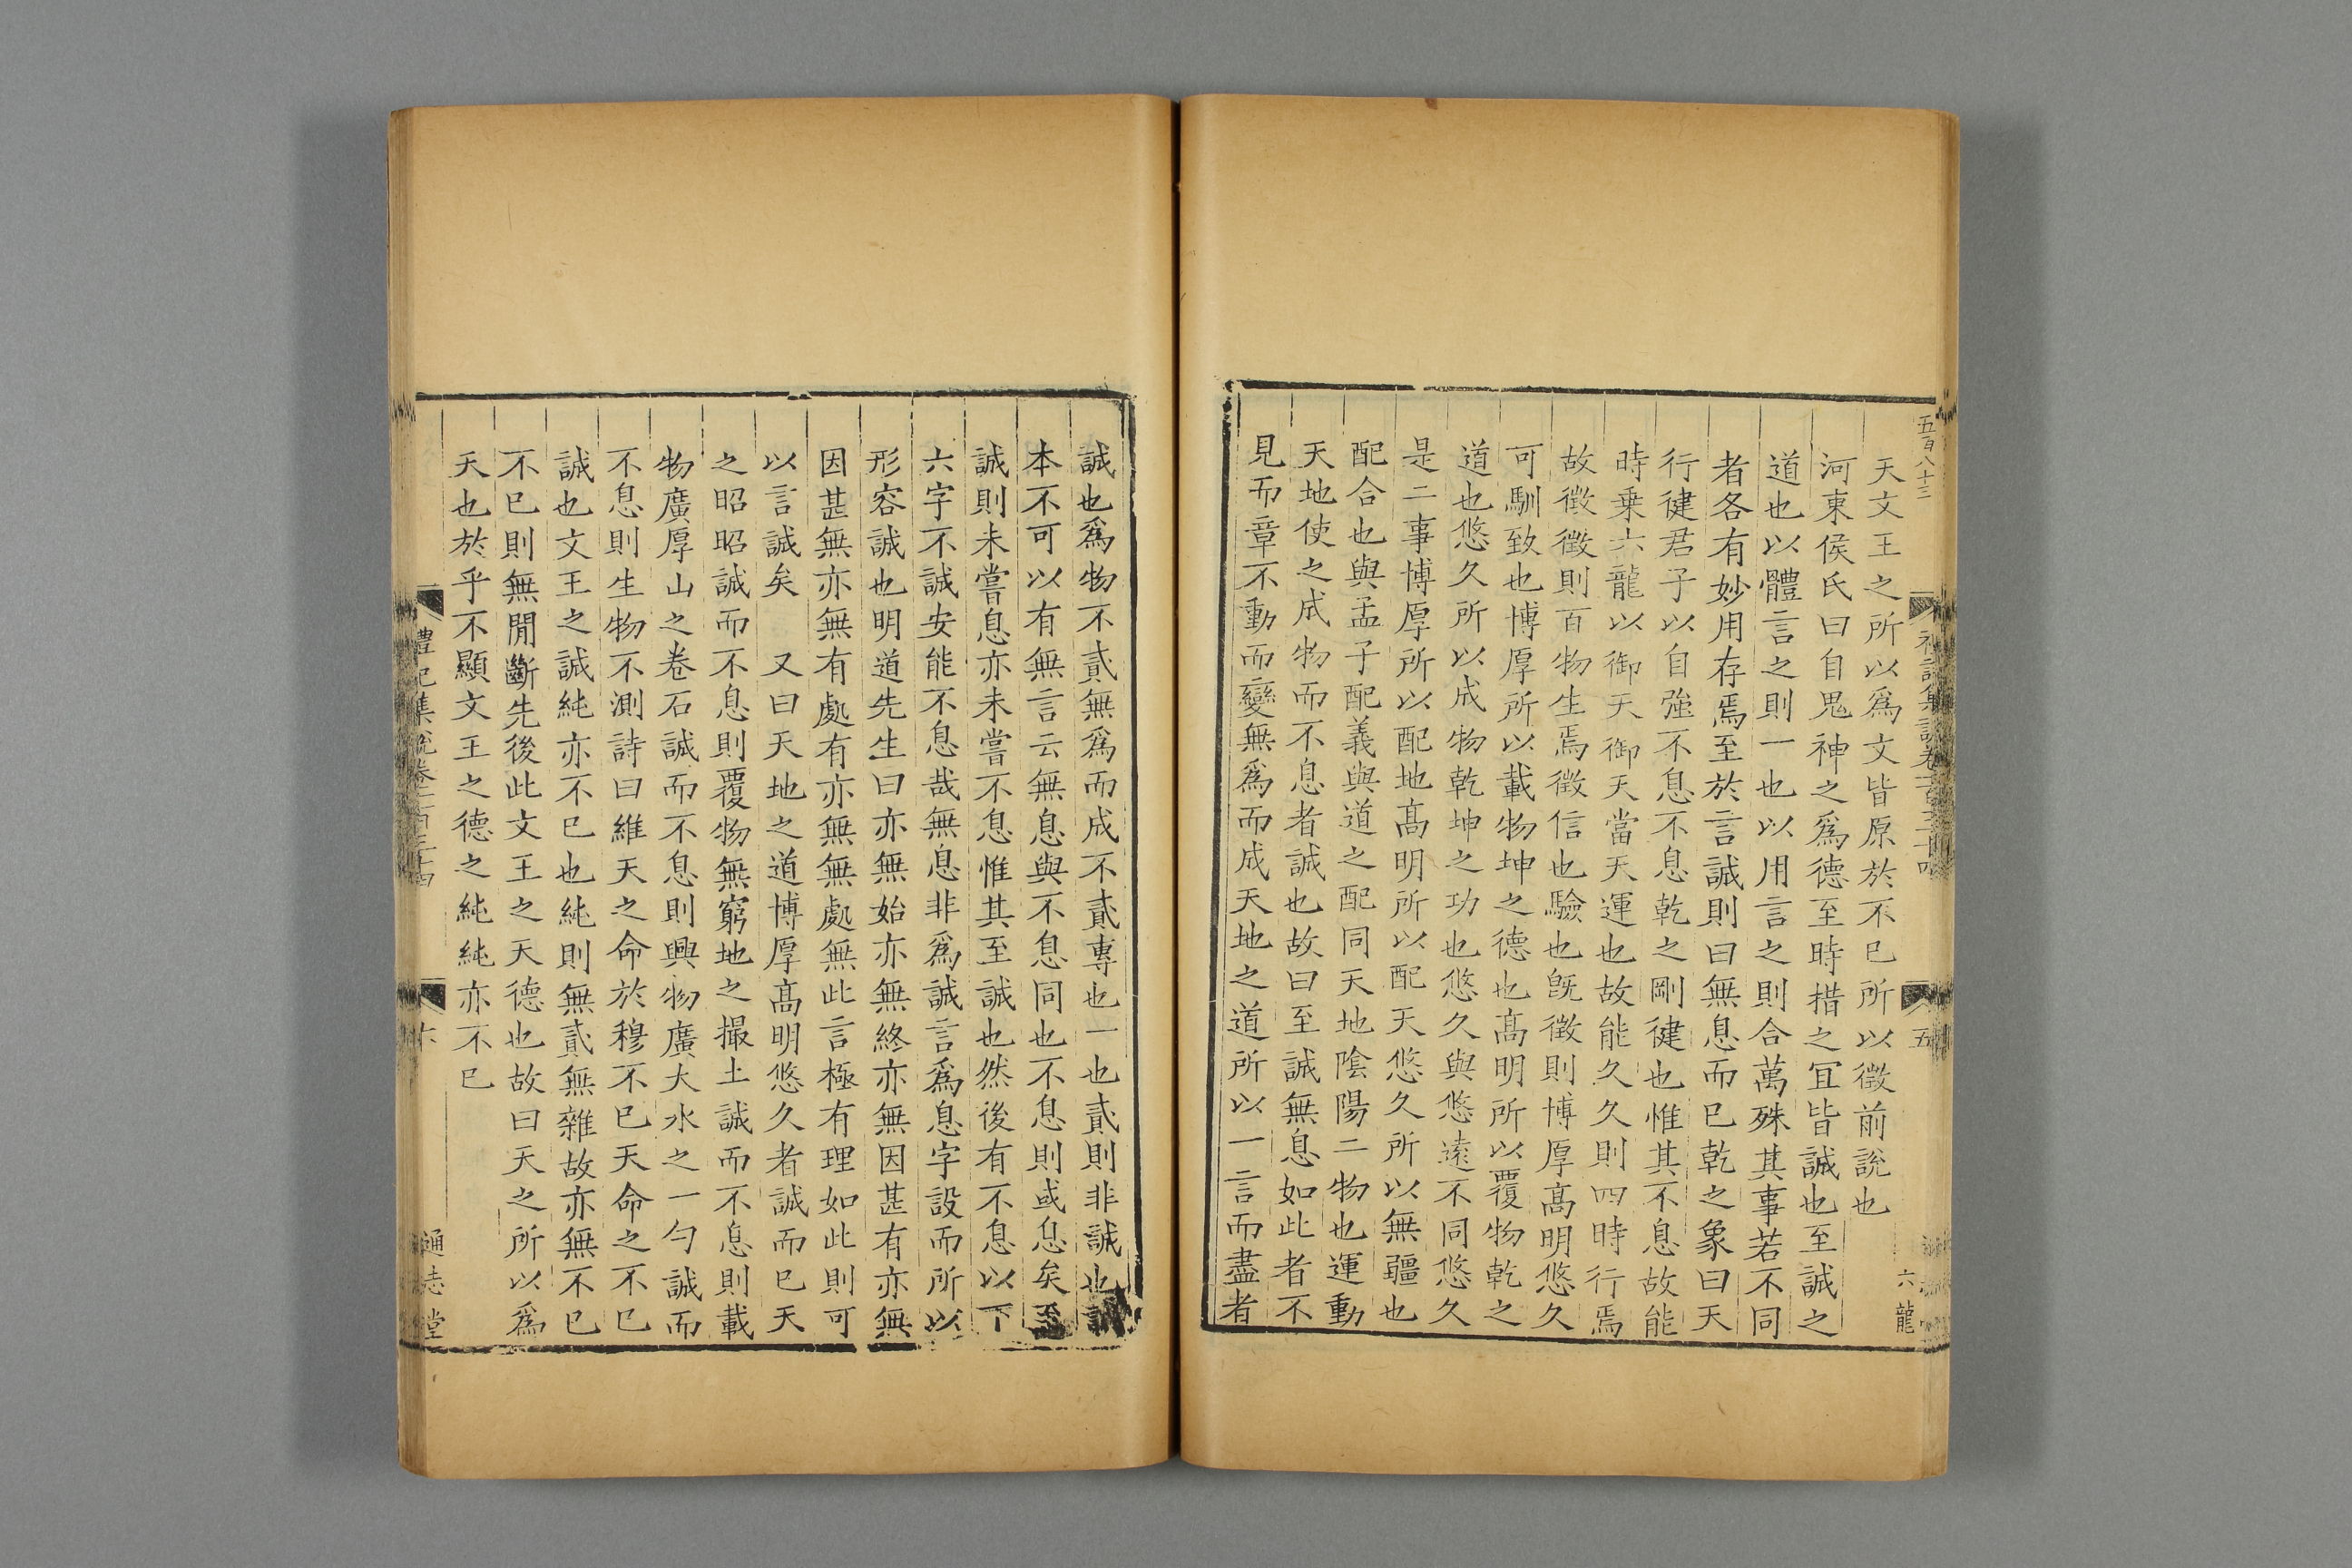 五百八十三
天文王之所以爲文皆原於不已所以徵前說也
河東侯氏曰自鬼神之爲德至時措之宜皆誠也至誠之
道也以體言之則一也以用言之則合萬殊其事若不同
者各有妙用存焉至於言誠則曰無息而已乾之象曰天
行健君子以自強不息不息乾之剛健也惟其不息故能
時乗六龍以御天御天當天運也故能久久則四時行焉
故徵徵則百物生焉徵信也驗也旣徵則博厚髙明悠久
可馴致也博厚所以載物坤之德也髙明所以覆物乾之
道也悠久所以成物乾坤之功也悠久與悠遠不同悠久
是二事博厚所以配地髙明所以配天悠久所以無疆也
配合也與孟子配義與道之配同天地隂陽二物也運動
天地使之成物而不息者誠也故曰至誠無息如此者不
見而章不動而變無爲而成天地之道所以一言而盡者
五
六龍
誠也爲物不貳無爲而成不貳專也一也貳則非誠也誠
本不可以有無言云無息與不息同也不息則或息矣至
誠則未嘗息亦未嘗不息惟其至誠也然後有不息以下
六字不誠安能不息哉無息非爲誠言爲息字設而所以
形容誠也明道先生曰亦無始亦無終亦無因甚有亦無
因甚無亦無有處有亦無無處無此言極有理如此則可
以言誠矣　又曰天地之道博厚髙明悠久者誠而已天
之昭昭誠而不息則覆物無窮地之撮土誠而不息則載
物廣厚山之卷石誠而不息則興物廣大水之一勺誠而
不息則生物不測詩曰維天之命於穆不已天命之不已
誠也文王之誠純亦不已也純則無貳無雜故亦無不已
不已則無閒斷先後此文王之天德也故曰天之所以爲
天也於乎不顯文王之德之純純亦不已
禮記集說卷一百三十四
通志堂